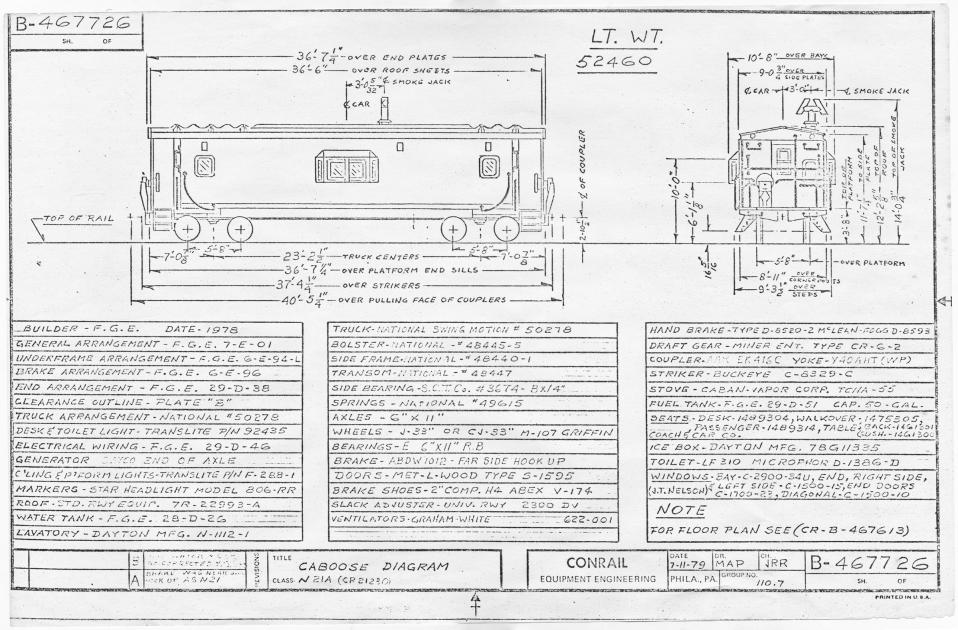 B-467726
SH. OF
LT. WT.
52460
36'-7 1/4" OVER END PLATES
36'-6" OVER ROOF SHEETS
3'-0 5/32" ℄ SMOKE JACK
℄ CAR
℄ OF COUPLER
2'-10 1/2"
TOP OF RAIL
5'-8"
5'-8"
7'-0 7/8"
23'-2 1/2" TRUCK CENTERS
7'-0 7/8"
36'-7 1/4" OVER PLATFORM END SILLS
37'-4 1/4" OVER STRIKERS
40'-5 1/4" OVER PULLING FACE OF COUPLERS
10'-8" OVER BAY
9'-0 3/4" OVER SIDE PLATES
℄ CAR 3'-0" ℄ SMOKE JACK
10'-0"
6'-11 1/8"
3'-8" TOP OF PLATFORM
TO SIDE PLATE
TOP OF ROOF
14'-0 3/4" TOP OF SMOKE JACK
5'-8" OVER PLATFORM
8'-11" OVER
9'-3 1/2" OVER STEPS
BUILDER - F.G.E. DATE - 1978
GENERAL ARRANGEMENT - F.G.E. 7-E-01
UNDERFRAME ARRANGEMENT - F.G.E. G-E-94-L
BRAKE ARRANGEMENT - F.G.E. G-E-96
END ARRANGEMENT - F.G.E. 29-D-38
CLEARANCE OUTLINE - PLATE "B"
TRUCK ARRANGEMENT - NATIONAL #50278
DESK & TOILET LIGHT - TRANSLITE P/N 92435
ELECTRICAL WIRING - F.G.E. 29-D-46
GENERATOR END OF AXLE
C'LING & PTFORM LIGHTS - TRANSLITE P/N F-288-1
MARKERS - STAR HEADLIGHT MODEL 806-RR
ROOF - STD. RWY EQUIP. 7R-22993-A
WATER TANK - F.G.E. 28-D-26
LAVATORY - DAYTON MFG. N-1112-1
TRUCK - NATIONAL SWING MOTION #50278
BOLSTER - NATIONAL - #48445-5
SIDE FRAME - NATIONAL - #48440-1
TRANSOM - NATIONAL - #48447
SIDE BEARING - S.C.T.Co. #3674 - 8X1/4"
SPRINGS - NATIONAL #49615
AXLES - 6" X 11"
WHEELS - J-33" OR CJ-33" M-107 GRIFFIN
BEARINGS - E 6"X11" R.B
BRAKE - ABDW 1012 - FAR SIDE HOOK UP
DOORS - MET-L-WOOD TYPE S-1595
BRAKE SHOES - 2" COMP. H4 ABEX V-174
SLACK ADJUSTER - UNIV. RWY 2300 DV
VENTILATORS - GRAHAM-WHITE 622-001
HAND BRAKE - TYPE D-8520-2 McLEAN-FOGG D-8593
DRAFT GEAR - MINER ENT. TYPE CR-6-2
COUPLER YOKE
STRIKER - BUCKEYE C-8329-C
STOVE - CABAN-VAPOR CORP.
FUEL TANK - F.G.E. 29-D-51 CAP. 50-GAL.
SEATS - DESK - 1489304, WALKOVER - 1475305
PASSENGER - 1489314, TABLE, BACK-1461301
COACH & CAR CO. CUSH.-1461300
ICE BOX - DAYTON MFG. 78G11335
TOILET - LF 310 MICROPHOR D-1386-D
WINDOWS - BAY - C-2900-54U, END, RIGHT SIDE,
(J.T. NELSON) & LEFT SIDE - C-1500-15, END DOORS
C-1700-23, DIAGONAL - C-1500-10
NOTE
FOR FLOOR PLAN SEE (CR-B-467613)
B
A
REVISIONS
TITLE
CABOOSE DIAGRAM
CLASS N21A (CR21230)
CONRAIL
EQUIPMENT ENGINEERING
DATE 7-11-79
DR. MAP
CH. JRR
PHILA., PA.
GROUP NO. 110.7
B-467726
SH. OF
PRINTED IN U.S.A.